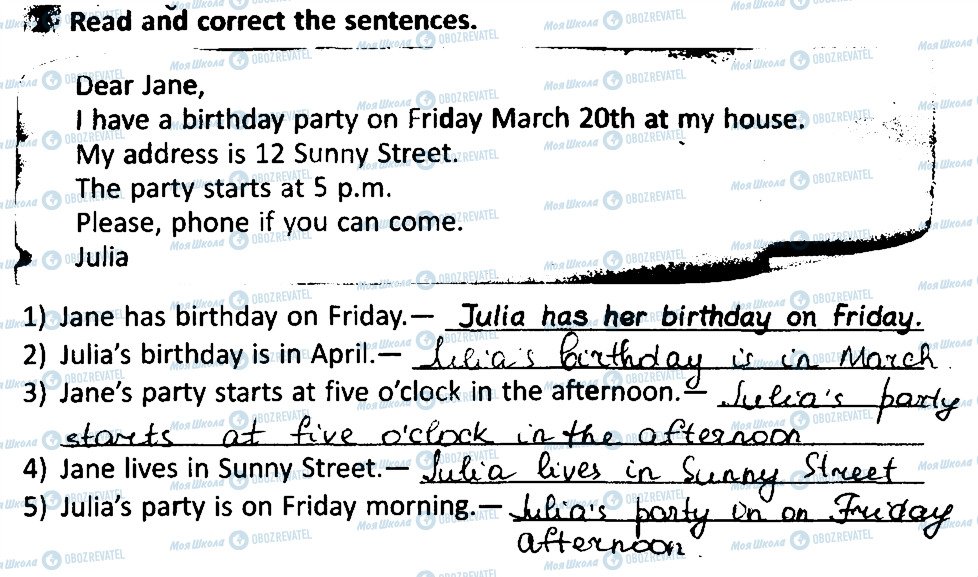 Read and correct the sentences.
Dear Jane,
I have a birthday party on Friday March 20th at my house.
My address is 12 Sunny Street.
The party starts at 5 p.m.
Please, phone if you can come.
Julia
1) Jane has birthday on Friday.— Julia has her birthday on Friday.
2) Julia's birthday is in April.— Julia's birthday is in March.
3) Jane's party starts at five o'clock in the afternoon.— Julia's party
starts at five o'clock in the afternoon
4) Jane lives in Sunny Street.— Julia lives in Sunny Street
5) Julia's party is on Friday morning.— Julia's party on on Friday
afternoon.
Моя Школа OBOZREVATEL